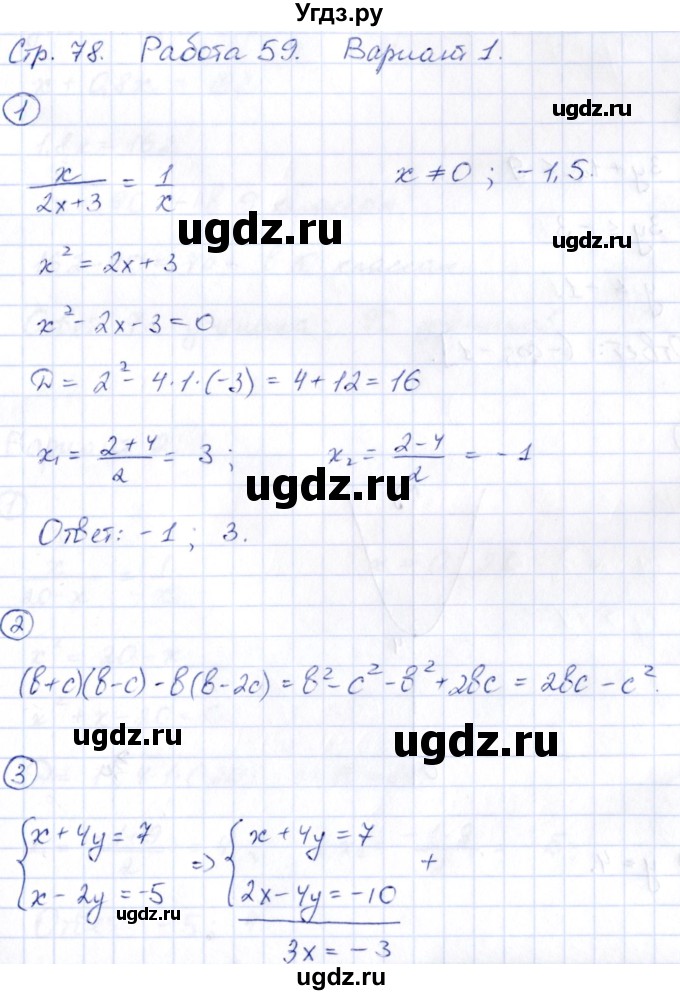 Угдз.ру
Стр. 78. Работа 59. Вариант 1.
ugdz.ru
1
x/(2x+3) = 1/x x ≠ 0 ; -1,5.
ugdz.ru
ugdz.ru
x² = 2x + 3
x² - 2x - 3 = 0
D = 2² - 4·1·(-3) = 4 + 12 = 16
x₁ = (2+4)/2 = 3 ; x₂ = (2-4)/2 = -1
ugdz.ru
Ответ: -1 ; 3.
ugdz.ru
2
(в+с)(в-с) - в(в-2с) = в² - с² - в² + 2вс = 2вс - с².
ugdz.ru
ugdz.ru
3
{ x + 4y = 7 => { x + 4y = 7 +
{ x - 2y = -5 { 2x - 4y = -10
ugdz.ru
3x = -3
ugdz.ru